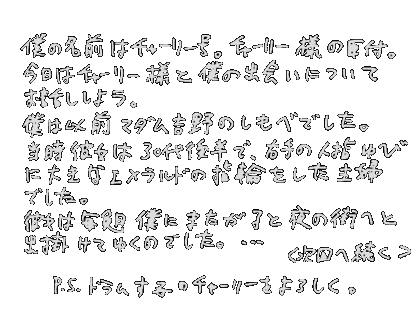 僕の名前はチャーリー号。チャーリー様の原付。
今日はチャーリー様と僕の出会いについて
お話ししよう。
僕は以前マダム吉野のしもべでした。
当時彼女は30代後半で、右手の人指ゆび
に大きなエメラルドの指輪をした主婦
でした。
彼女は毎晩僕にまたがると夜の街へと
出掛けてゆくのでした。…
〈次回へ続く〉
P.S.ドラムするチャーリーをよろしく。